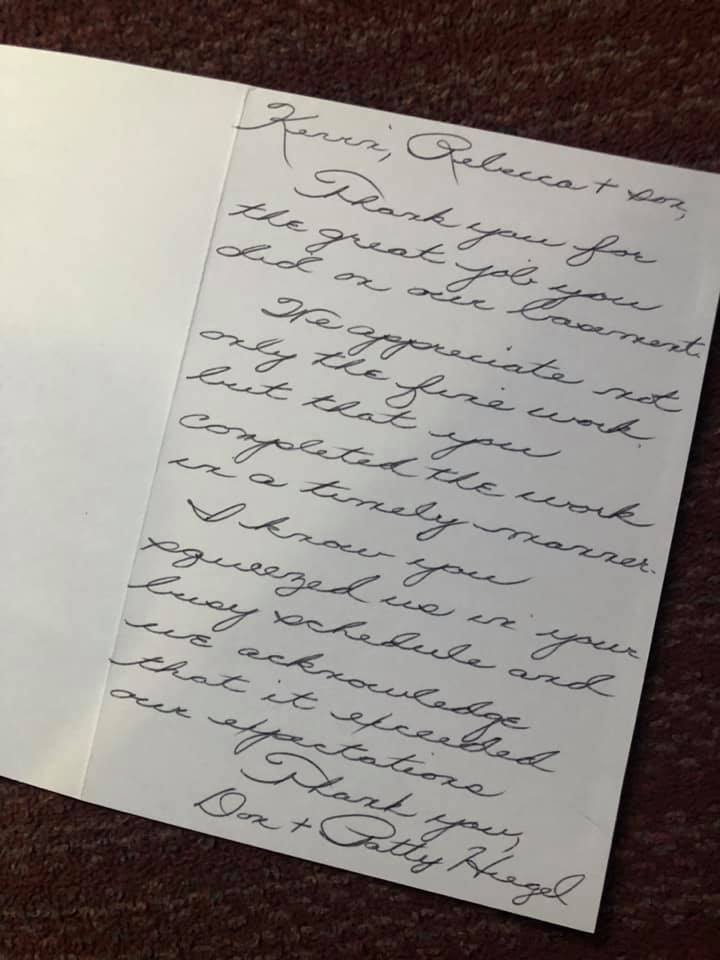 Kerri, Rebecca + son,
Thank you for
the great job you
did on our basement.
We appreciate not
only the fine work
but that you
completed the work
in a timely manner.
I know you
squeezed us in your
busy schedule and
we acknowledge
that it exceeded
our expectations
Thank you,
Don + Patty Hiegel